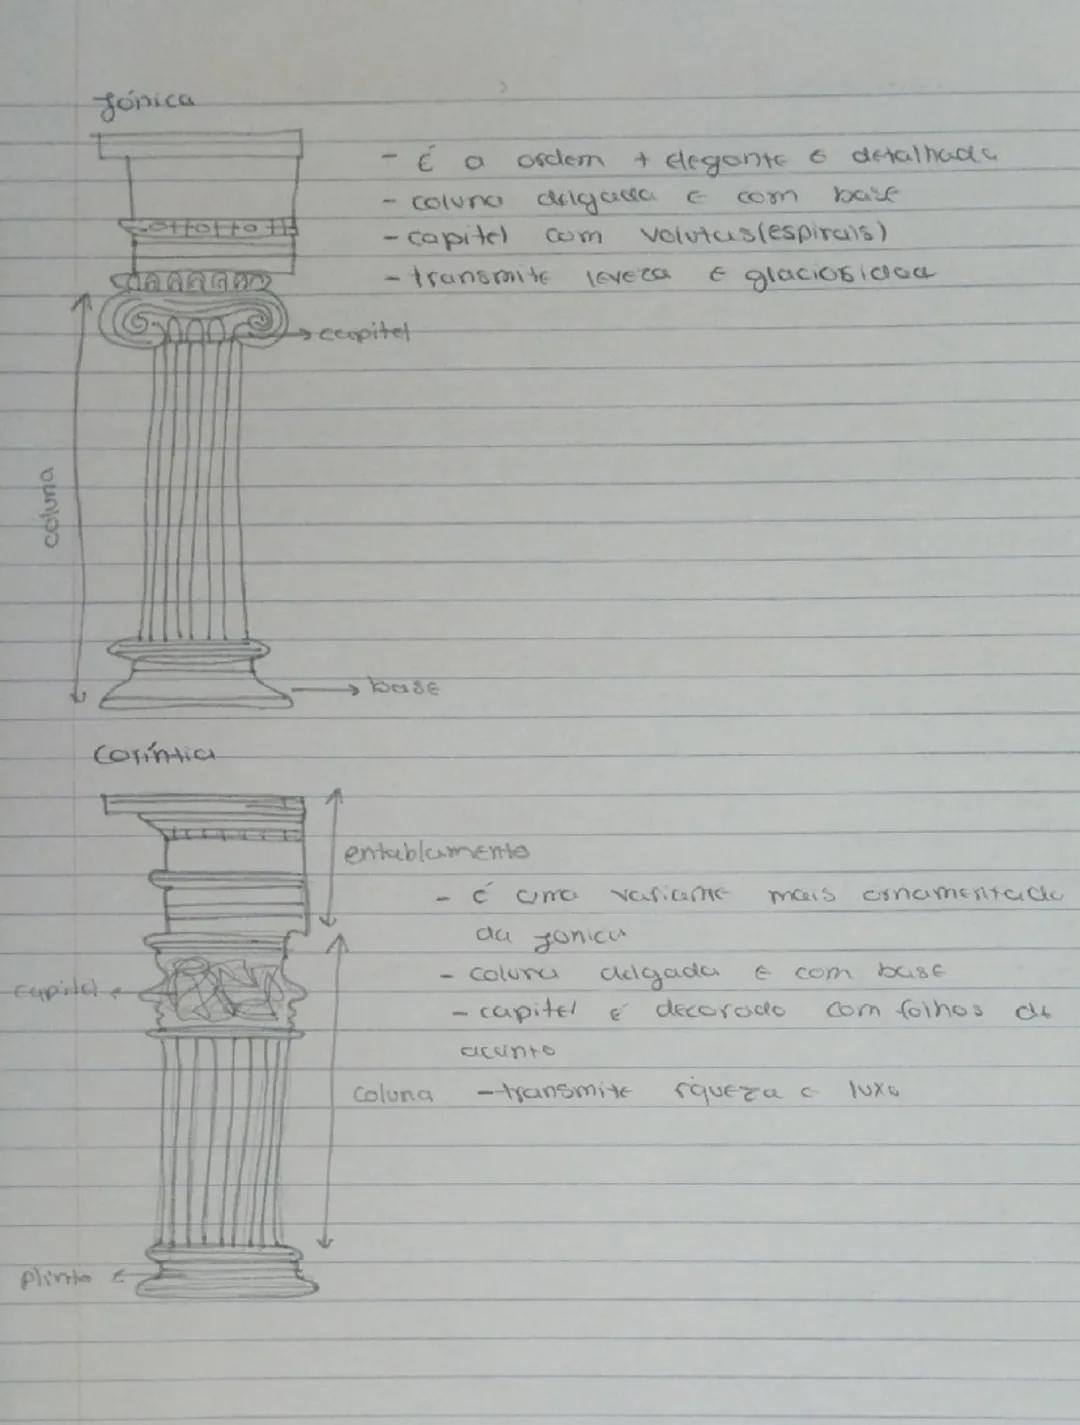 Jónica
- É a ordem + elegante e detalhada
- coluna delgada e com base
- capitel com volutas (espirais)
- transmite leveza e glaciosidad
capitel
coluna
base
Coríntica
entablamento
- é uma variante mais ornamentada
da jonica
- coluna delgada e com base
capitel
- capitel é decorado com folhos de
acanto
coluna - transmite riqueza e luxo
plinto